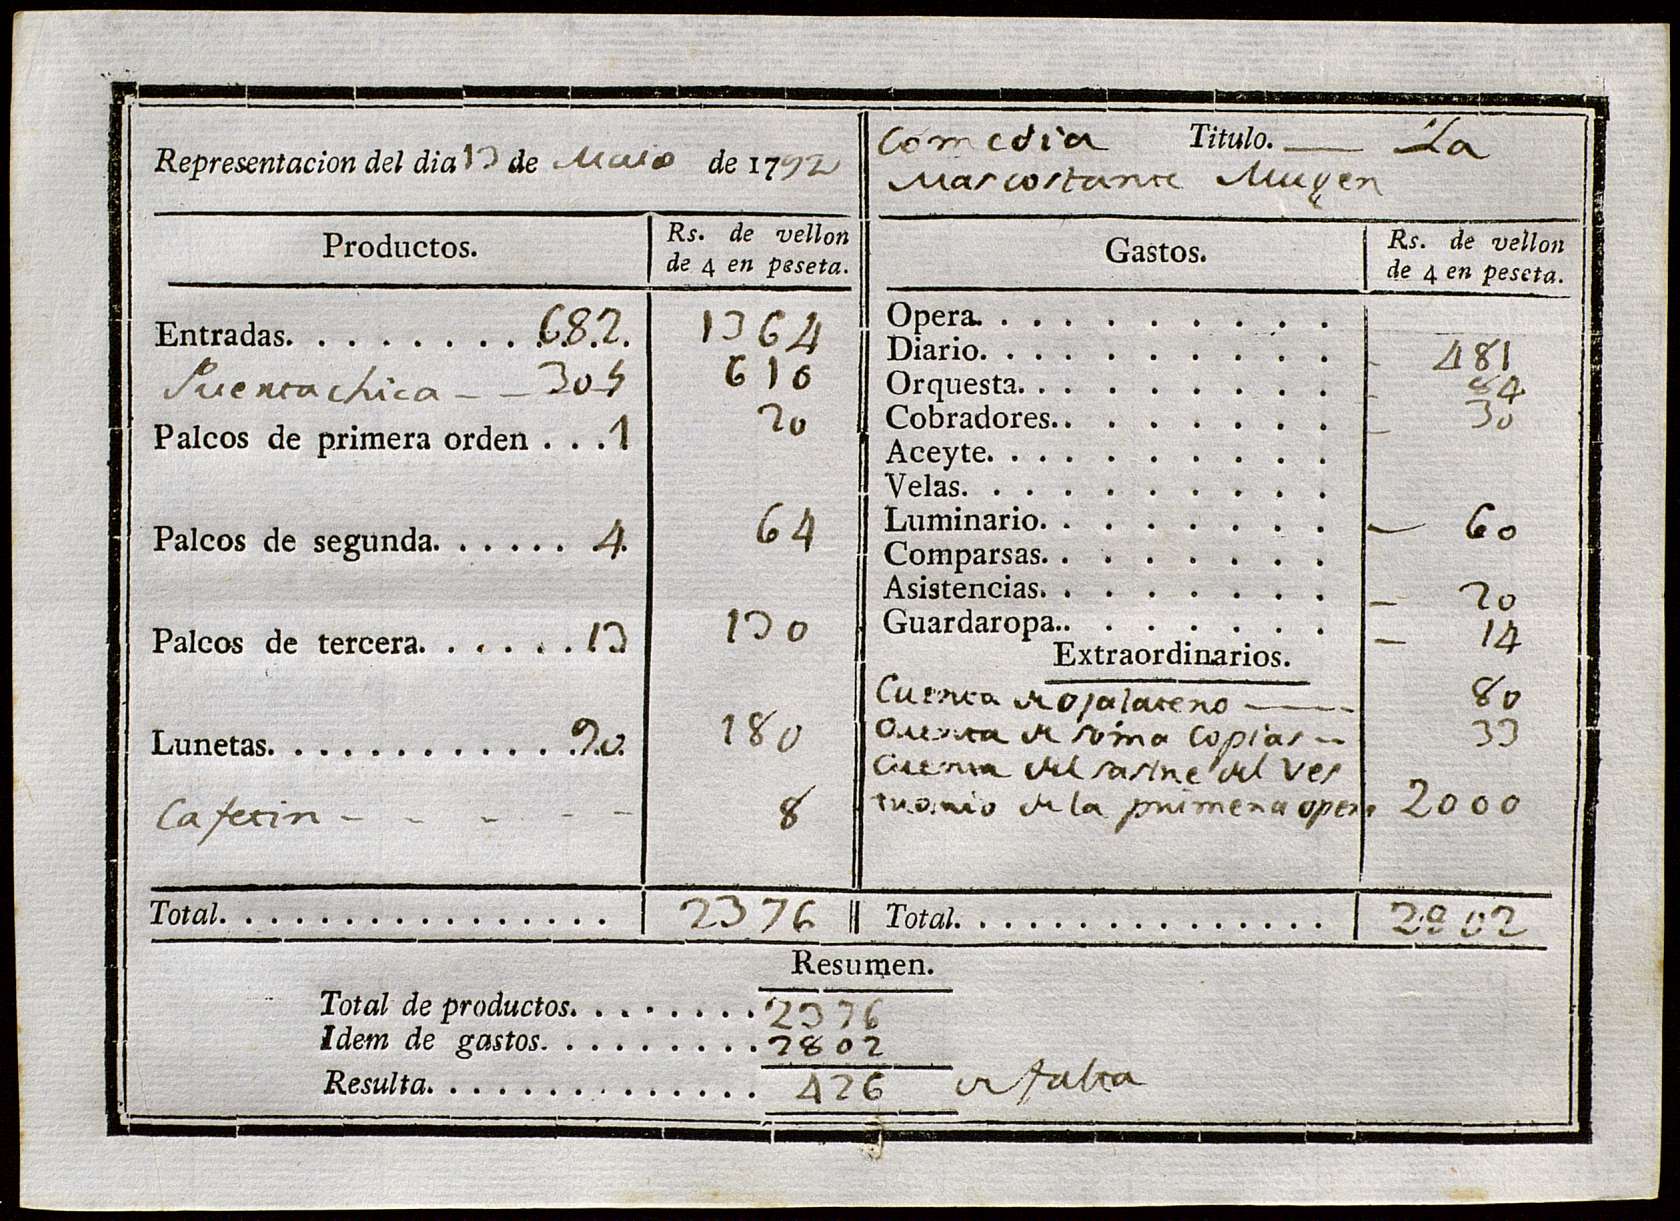 Representacion del dia 13 de Maio de 1792
Comedia Titulo. La
Mas costante Muger
Productos.
Rs. de vellon
de 4 en peseta.
Entradas. 682. 1364
Puerta chica 305 610
Palcos de primera orden 1 20
Palcos de segunda. 4. 64
Palcos de tercera. 13 130
Lunetas. 90. 180
Cafetin 8
Total. 2376
Gastos.
Rs. de vellon
de 4 en peseta.
Opera.
Diario. 481
Orquesta. 84
Cobradores. 30
Aceyte.
Velas.
Luminario. 60
Comparsas.
Asistencias. 20
Guardaropa. 14
Extraordinarios.
Cuenta de ojalatero 80
Cuenta de copias 33
Cuenta del sastre del ves
tuario de la primera opera 2000
Total. 2802
Resumen.
Total de productos. 2376
Idem de gastos. 2802
Resulta. 426 de falta